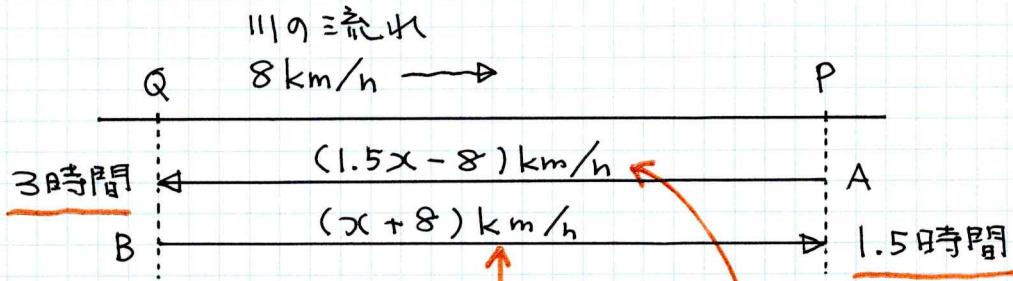 川の流れ
8km/h
Q
P
(1.5x-8)km/h
3時間
A
(x+8)km/h
B
1.5時間